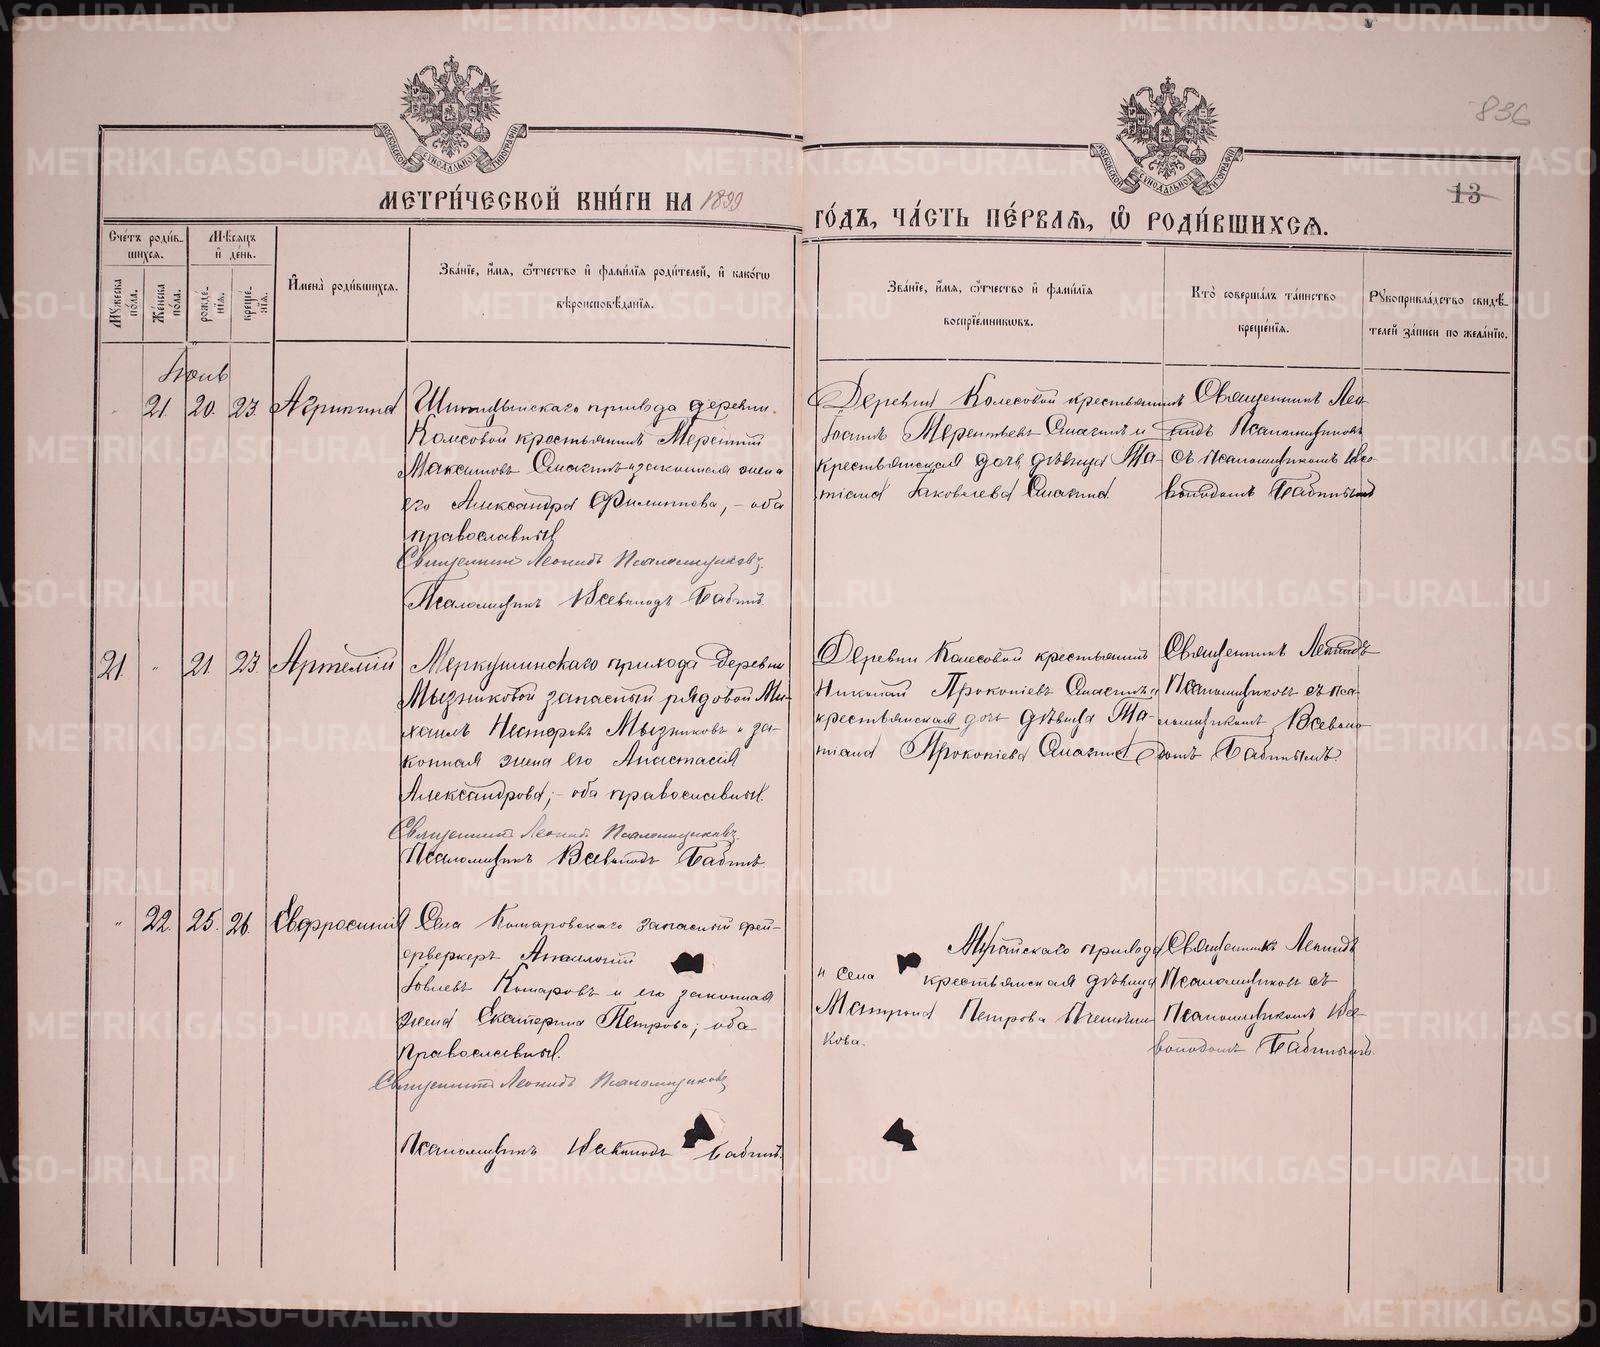 836
13
МОСКОВСКОЙ СУНОДАЛЬНОЙ ТИПОГРАФИИ
МОСКОВСКОЙ СУНОДАЛЬНОЙ ТИПОГРАФИИ
МЕТРИ́ЧЕСКОЙ КНИ́ГИ НА 1899
ГО́ДЪ, ЧА́СТЬ ПЕ́РВАЯ, Ѡ҆ РОДИ́ВШИХСЯ.
Сче́тъ роди́в-
шихся.
Мꙋжеска по́ла.
Же́нска по́ла.
Мѣ́сяцъ
и҆ де́нь.
рожде́нїя.
креще́нїя.
И҆мена̀ роди́вшихся.
Зва́нїе, и҆́мя, ѻ҆́тчество и҆ фами́лїя роди́телей, и҆ како́гѡ
вѣроисповѣ́данїя.
Зва́нїе, и҆́мя, ѻ҆́тчество и҆ фами́лїя
воспрїе́мникѡвъ.
Кто̀ соверша́лъ та́инство
креще́нїя.
Рꙋкоприкла́дство свидѣ́-
телей за́писи по жела́нїю.
Іюнь
" 21. 20. 23. Агрипина
прихода деревни
Колесовой крестьянинъ Терентій
Максимовъ Смагинъ и законная жена
его Александра Филиппова, – оба
православные.
Священникъ Леонидъ Псаломщиковъ.
Псаломщикъ Всеволодъ Бабинъ.
Деревни Колесовой крестьянинъ
Іоаннъ Терентьевъ Смагинъ и
крестьянская дочь, дѣвица Та-
тіана Іаковлева Смагина.
Священникъ Лео-
нидъ Псаломщиковъ
съ псаломщикомъ Все-
володомъ Бабинымъ
21. " 21. 23. Артемій
Меркушинскаго прихода деревни
Мызниковой запасный рядовой Ми-
хаилъ Несторовъ Мызниковъ и за-
конная жена его Анастасія
Александрова; – оба православные.
Священникъ Леонидъ Псаломщиковъ.
Псаломщикъ Всеволодъ Бабинъ.
Деревни Колесовой крестьянинъ
Николай Прокопіевъ Смагинъ и
крестьянская дочь дѣвица Та-
тіана Прокопіева Смагина
Священникъ Леонидъ
Псаломщиковъ съ пса-
ломщикомъ Всеволо-
домъ Бабинымъ.
" 22. 25. 26. Евфросинія
Села Комаровскаго запасный фей-
ерверкеръ
Іовлевъ Комаровъ и его законная
жена Екатерина Петрова; оба
православные.
Священникъ Леонидъ Псаломщиковъ
Псаломщикъ Всеволодъ Бабинъ.
прихода
" села крестьянская дѣвица
Матрона Петрова
кова.
Священникъ Леонидъ
Псаломщиковъ съ
Псаломщикомъ Все-
володомъ Бабинымъ.
METRIKI.GASO-URAL.RU